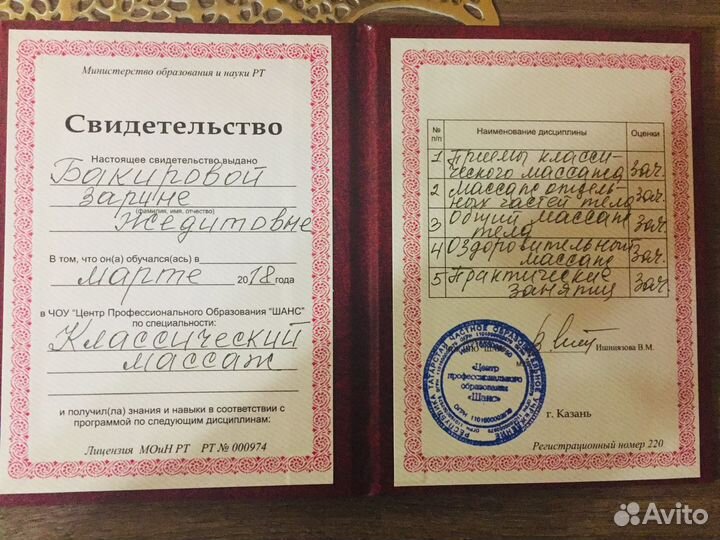 Министерство образования и науки РТ
Свидетельство
Настоящее свидетельство выдано
Бакировой
Зарине
(фамилия, имя, отчество)
Жедитовне
В том, что он(а) обучался(ась) в
марте 2018 года
в ЧОУ "Центр Профессионального Образования "ШАНС"
по специальности:
Классический
массаж
и получил(ла) знания и навыки в соответствии с
программой по следующим дисциплинам:
Лицензия МОиН РТ РТ № 000974
№ п/п Наименование дисциплины Оценки
1 Приемы класси-
ческого массажа зач.
2 Массаж отдель-
ных частей тела зач.
3 Общий массаж
тела зач.
4 Оздоровительный
массаж зач.
5 Практические
занятия зач.
Ишниязова В.М.
«Центр
профессионального
образования
«Шанс»
г. Казань
Регистрационный номер 220
Avito